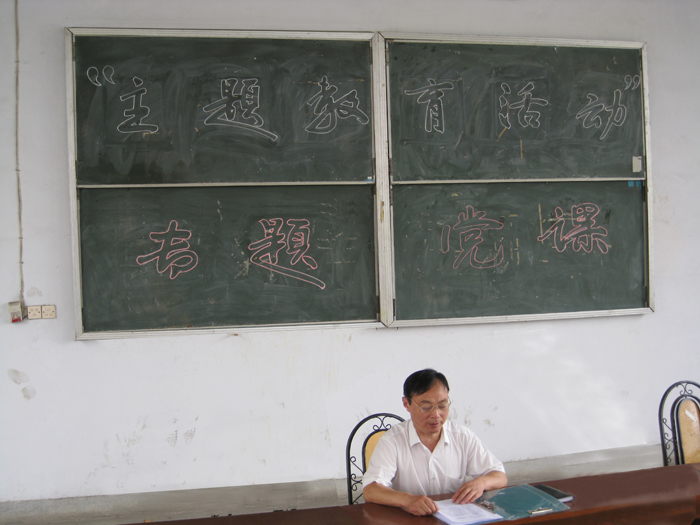 “主题教育活动”
专题党课